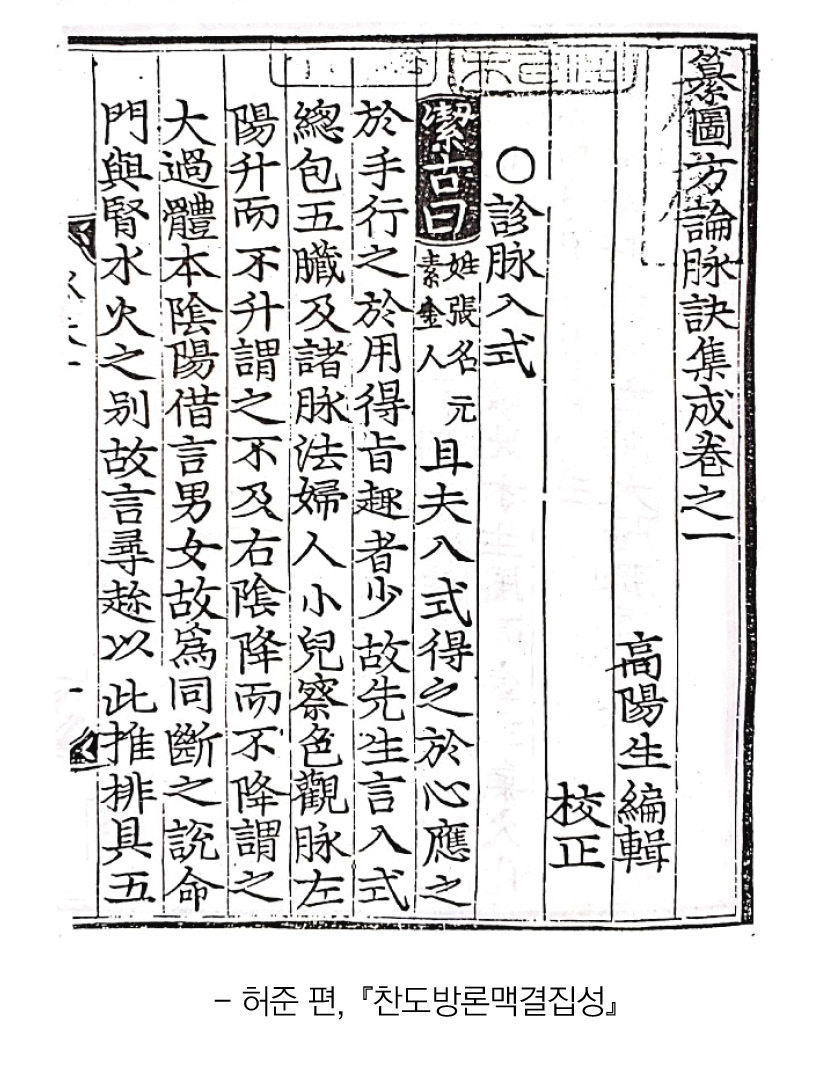 纂圖方論脉訣集成卷之一
高陽生編輯
校正
○診脉入式
潔古曰 姓張名元素金人 且夫入式得之於心應之
於手行之於用得旨趣者少故先生言入式
總包五臟及諸脉法婦人小兒察色觀脉左
陽升而不升謂之不及右陰降而不降謂之
大過體本陰陽借言男女故爲同斷之說命
門與腎水火之别故言尋趂以此推排具五
- 허준 편, 『찬도방론맥결집성』